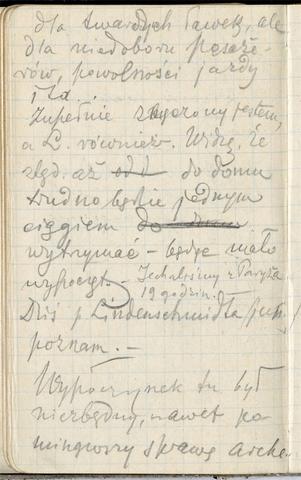 dla twardych ławek, ale
dla niedoboru pasaże-
rów, powolności jazdy
itd.
Zupełnie zmęczony jestem,
a L. również. Widzę, że
stąd aż do domu
trudno będzie jednym
ciągiem
wytrzymać – będę mało
wypocząt. – Jechaliśmy z Paryża
19 godzin.
Dziś p. Lindenschmidta
poznam. –
Wypoczynek tu był
niezbędny, nawet po-
minąwszy sprawę arche-